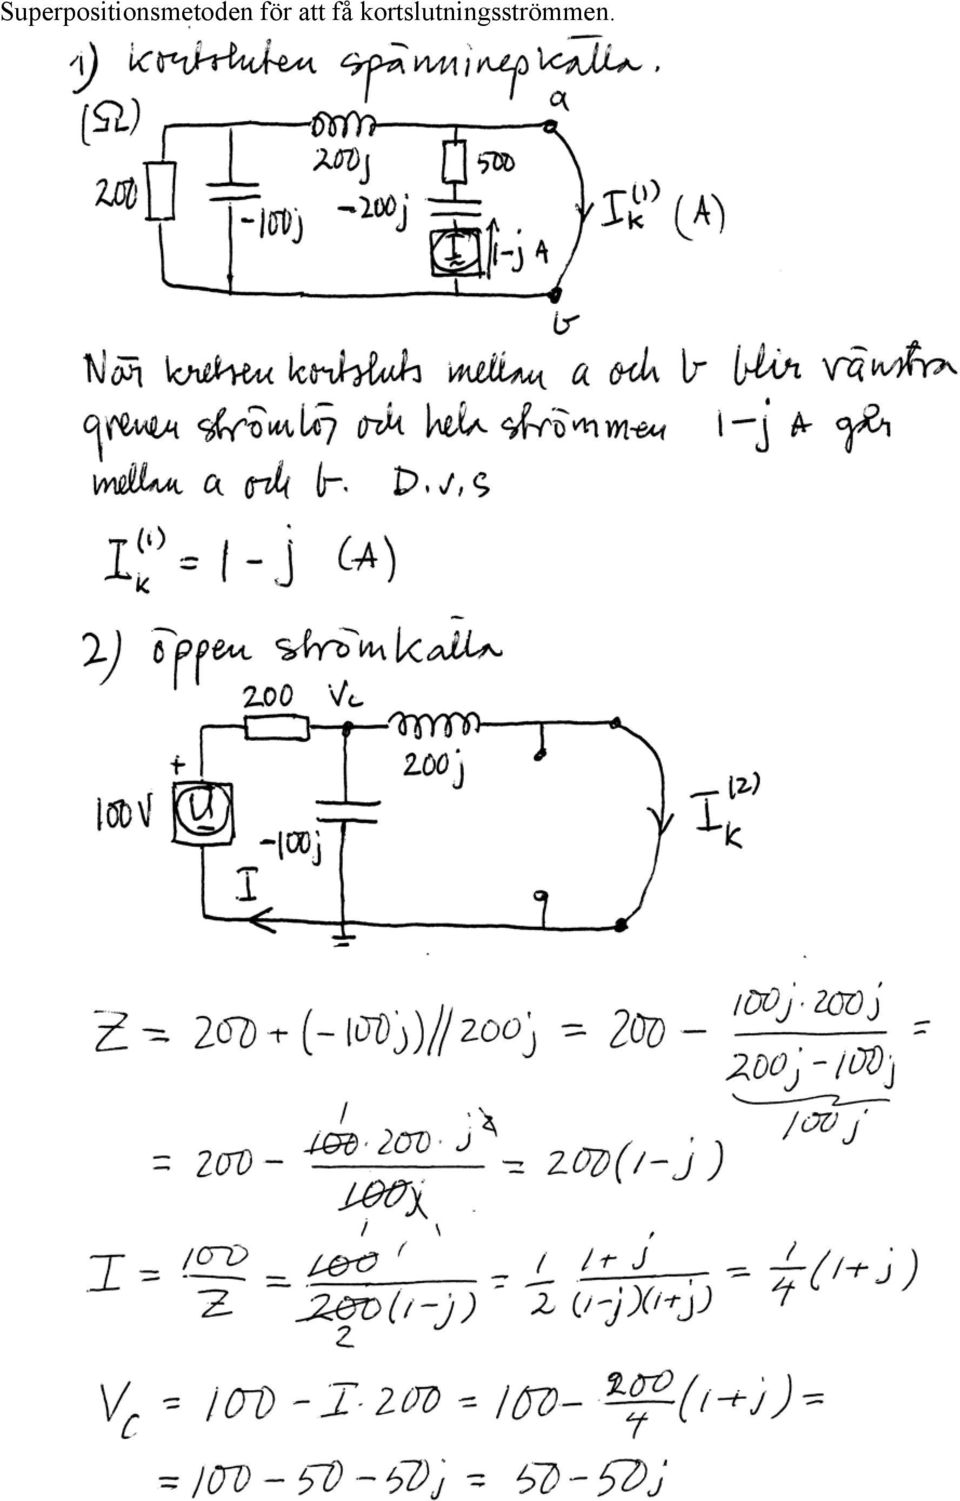 Superpositionsmetoden för att få kortslutningsströmmen.
1) kortsluten spänningskälla.
(Ω)
a
200
-100j
200j
-200j
500
1-j A
I_K^(1) (A)
b
När kretsen kortsluts mellan a och b blir vänstra
grenen strömlös och hela strömmen 1-j A går
mellan a och b. D.v.s
I_K^(1) = 1 - j (A)
2) öppen strömkälla
200 Vc
200j
+
100V U
-100j
I
I_K^(2)
Z = 200 + (-100j)//200j = 200 - (100j · 200j)/(200j - 100j) =
100j
= 200 - (100 · 200 · j²)/(100j) = 200(1-j)
I = 100/Z = 100/(200(1-j)) = 1/2 (1+j)/((1-j)(1+j)) = 1/4 (1+j)
V_C = 100 - I · 200 = 100 - 200/4 (1+j) =
= 100 - 50 - 50j = 50 - 50j